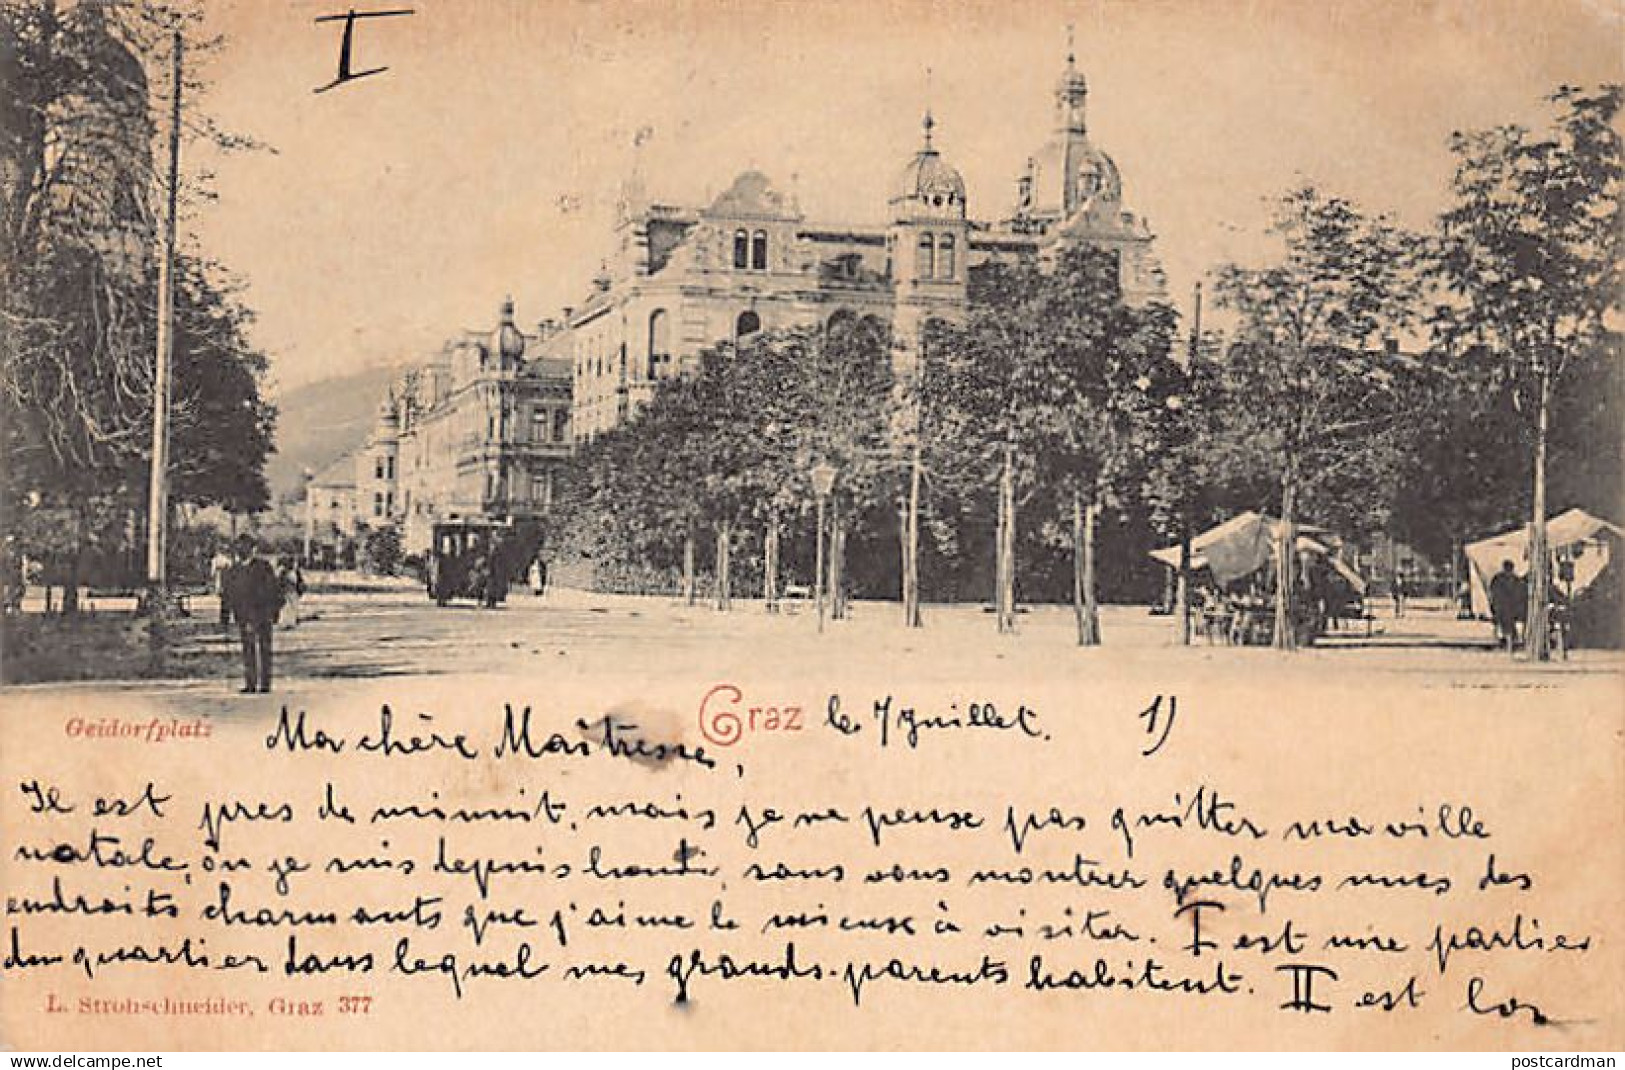 I
Geidorfplatz
Ma chère Maîtresse,
Graz le 7 juillet. 1)
Il est près de minuit, mais je ne peuse pas quitter ma ville
natale, où je suis depuis lundi, sans vous montrer quelques unes des
endroits charmants que j'aime le mieux à visiter. I est une partie
du quartier dans lequel mes grands-parents habitent. II est la
L. Strohschneider, Graz 377
www.delcampe.net
postcardman